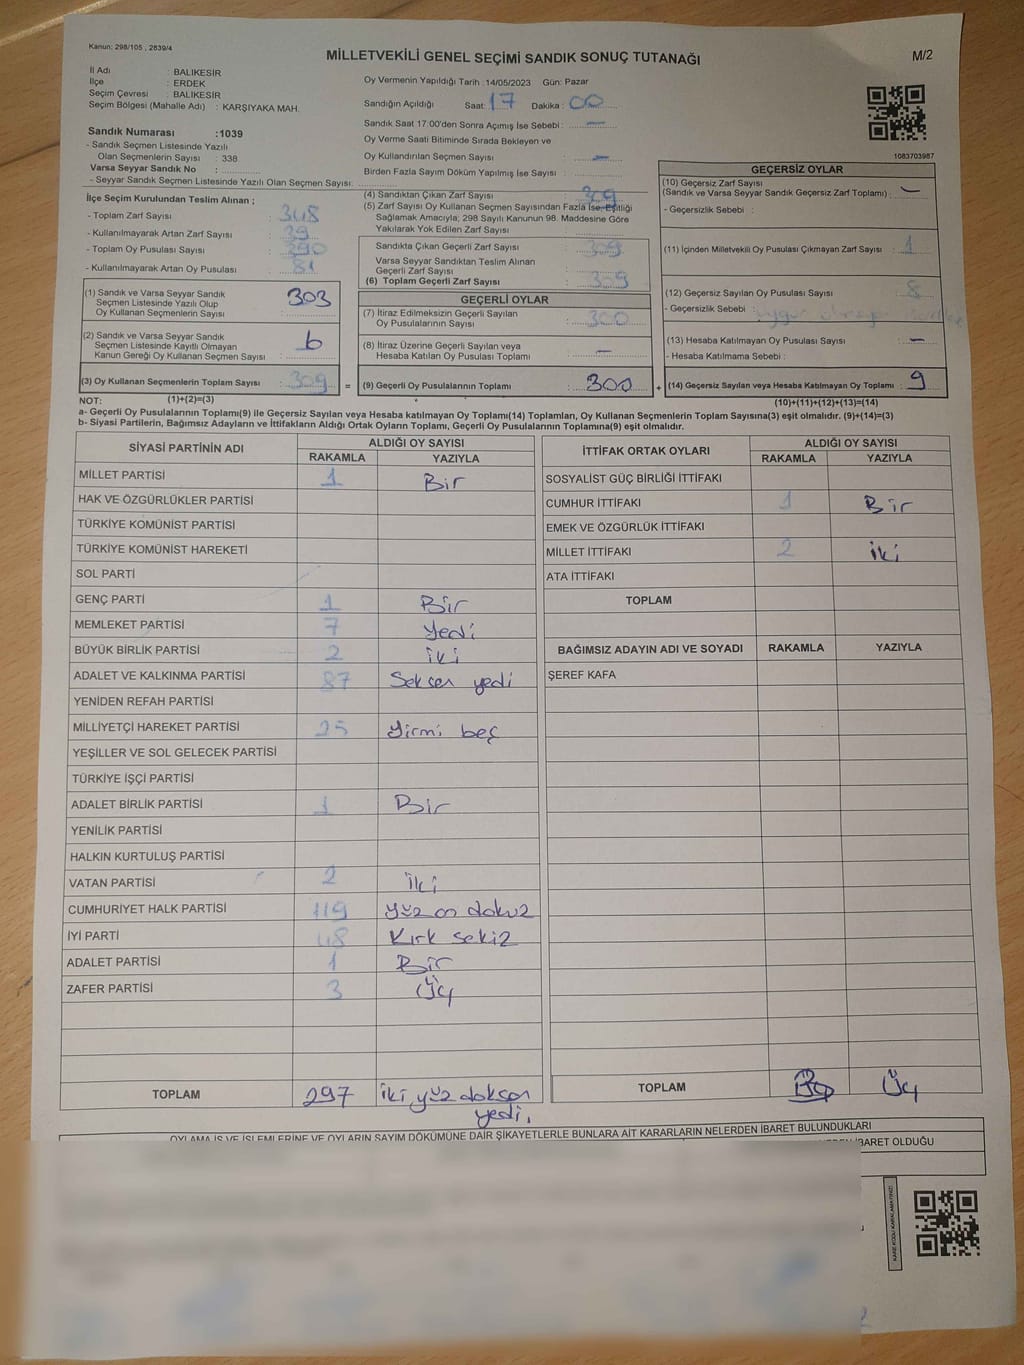 Kanun: 298/105 , 2839/4
MİLLETVEKİLİ GENEL SEÇİMİ SANDIK SONUÇ TUTANAĞI
M/2
İl Adı : BALIKESİR
İlçe : ERDEK
Seçim Çevresi : BALIKESİR
Seçim Bölgesi (Mahalle Adı) : KARŞIYAKA MAH.
Sandık Numarası :1039
- Sandık Seçmen Listesinde Yazılı
Olan Seçmenlerin Sayısı : 338
Varsa Seyyar Sandık No :
- Seyyar Sandık Seçmen Listesinde Yazılı Olan Seçmen Sayısı:
Oy Vermenin Yapıldığı Tarih :14/05/2023 Gün: Pazar
Sandığın Açıldığı Saat: 17 Dakika : 00
Sandık Saat 17.00'den Sonra Açımış İse Sebebi : —
Oy Verme Saati Bitiminde Sırada Bekleyen ve
Oy Kullandırılan Seçmen Sayısı : —
Birden Fazla Sayım Döküm Yapılmış İse Sayısı :
1083703987
İlçe Seçim Kurulundan Teslim Alınan ;
- Toplam Zarf Sayısı : 348
- Kullanılmayarak Artan Zarf Sayısı : 39
- Toplam Oy Pusulası Sayısı : 390
- Kullanılmayarak Artan Oy Pusulası : 81
(1) Sandık ve Varsa Seyyar Sandık
Seçmen Listesinde Yazılı Olup
Oy Kullanan Seçmenlerin Sayısı : 303
(2) Sandık ve Varsa Seyyar Sandık
Seçmen Listesinde Kayıtlı Olmayan
Kanun Gereği Oy Kullanan Seçmen Sayısı : 6
(3) Oy Kullanan Seçmenlerin Toplam Sayısı : 309 =
(4) Sandıktan Çıkan Zarf Sayısı : 309
(5) Zarf Sayısı Oy Kullanan Seçmen Sayısından Fazla İse, Eşitliği
Sağlamak Amacıyla; 298 Sayılı Kanunun 98. Maddesine Göre
Yakılarak Yok Edilen Zarf Sayısı :
Sandıkta Çıkan Geçerli Zarf Sayısı : 309
Varsa Seyyar Sandıktan Teslim Alınan
Geçerli Zarf Sayısı :
(6) Toplam Geçerli Zarf Sayısı : 309
GEÇERLİ OYLAR
(7) İtiraz Edilmeksizin Geçerli Sayılan
Oy Pusulalarının Sayısı : 300
(8) İtiraz Üzerine Geçerli Sayılan veya
Hesaba Katılan Oy Pusulası Toplamı : —
(9) Geçerli Oy Pusulalarının Toplamı : 300 +
GEÇERSİZ OYLAR
(10) Geçersiz Zarf Sayısı
(Sandık ve Varsa Seyyar Sandık Geçersiz Zarf Toplamı) : —
- Geçersizlik Sebebi :
(11) İçinden Milletvekili Oy Pusulası Çıkmayan Zarf Sayısı : 1
(12) Geçersiz Sayılan Oy Pusulası Sayısı : 8
- Geçersizlik Sebebi :
(13) Hesaba Katılmayan Oy Pusulası Sayısı : —
- Hesaba Katılmama Sebebi :
(14) Geçersiz Sayılan veya Hesaba Katılmayan Oy Toplamı : 9
NOT: (1)+(2)=(3)
(10)+(11)+(12)+(13)=(14)
a- Geçerli Oy Pusulalarının Toplamı(9) ile Geçersiz Sayılan veya Hesaba katılmayan Oy Toplamı(14) Toplamları, Oy Kullanan Seçmenlerin Toplam Sayısına(3) eşit olmalıdır. (9)+(14)=(3)
b- Siyasi Partilerin, Bağımsız Adayların ve İttifakların Aldığı Ortak Oyların Toplamı, Geçerli Oy Pusulalarının Toplamına(9) eşit olmalıdır.
SİYASİ PARTİNİN ADI ALDIĞI OY SAYISI
RAKAMLA YAZIYLA
MİLLET PARTİSİ 1 Bir
HAK VE ÖZGÜRLÜKLER PARTİSİ
TÜRKİYE KOMÜNİST PARTİSİ
TÜRKİYE KOMÜNİST HAREKETİ
SOL PARTİ
GENÇ PARTİ 1 Bir
MEMLEKET PARTİSİ 7 Yedi
BÜYÜK BİRLİK PARTİSİ 2 İki
ADALET VE KALKINMA PARTİSİ 87 Seksen yedi
YENİDEN REFAH PARTİSİ
MİLLİYETÇİ HAREKET PARTİSİ 25 Yirmi beş
YEŞİLLER VE SOL GELECEK PARTİSİ
TÜRKİYE İŞÇİ PARTİSİ
ADALET BİRLİK PARTİSİ 1 Bir
YENİLİK PARTİSİ
HALKIN KURTULUŞ PARTİSİ
VATAN PARTİSİ 2 İki
CUMHURİYET HALK PARTİSİ 119 Yüz on dokuz
İYİ PARTİ 48 Kırk sekiz
ADALET PARTİSİ 1 Bir
ZAFER PARTİSİ 3 Üç
TOPLAM 297 İki yüz doksan
yedi.
İTTİFAK ORTAK OYLARI ALDIĞI OY SAYISI
RAKAMLA YAZIYLA
SOSYALİST GÜÇ BİRLİĞİ İTTİFAKI
CUMHUR İTTİFAKI 1 Bir
EMEK VE ÖZGÜRLÜK İTTİFAKI
MİLLET İTTİFAKI 2 İki
ATA İTTİFAKI
TOPLAM
BAĞIMSIZ ADAYIN ADI VE SOYADI RAKAMLA YAZIYLA
ŞEREF KAFA
TOPLAM Üç
OYLAMA İŞ VE İŞLEMLERİNE VE OYLARIN SAYIM DÖKÜMÜNE DAİR ŞİKAYETLERLE BUNLARA AİT KARARLARIN NELERDEN İBARET BULUNDUKLARI
İBARET OLDUĞU